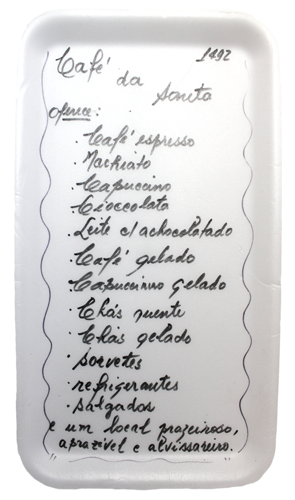 Café 1492
da Sonita
oferece:
. Café espresso
Machiato
. Capuccino
. Cioccolata
. Leite c/ achocolatado
. Café gelado
. Capuccinno gelado
. Chás quente
. Chás gelado
. sorvetes
. refrigerantes
. salgados
e um local prazeiroso,
aprazível e alvissareiro.